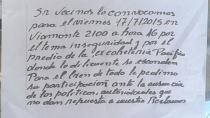 Sr Vecinos lo convocamos
para el viernes 17/7/2015 en
Viamonte 2100 a hora 16 por
el tema inseguridad y por el
predio de la ex cafeteria
donde lo delincuente se esconden
Para el bien de todo le pedimo
su participación ante la ausencia
de los politicos, autoridades que
no dan repuesta a nuestro Reclamos